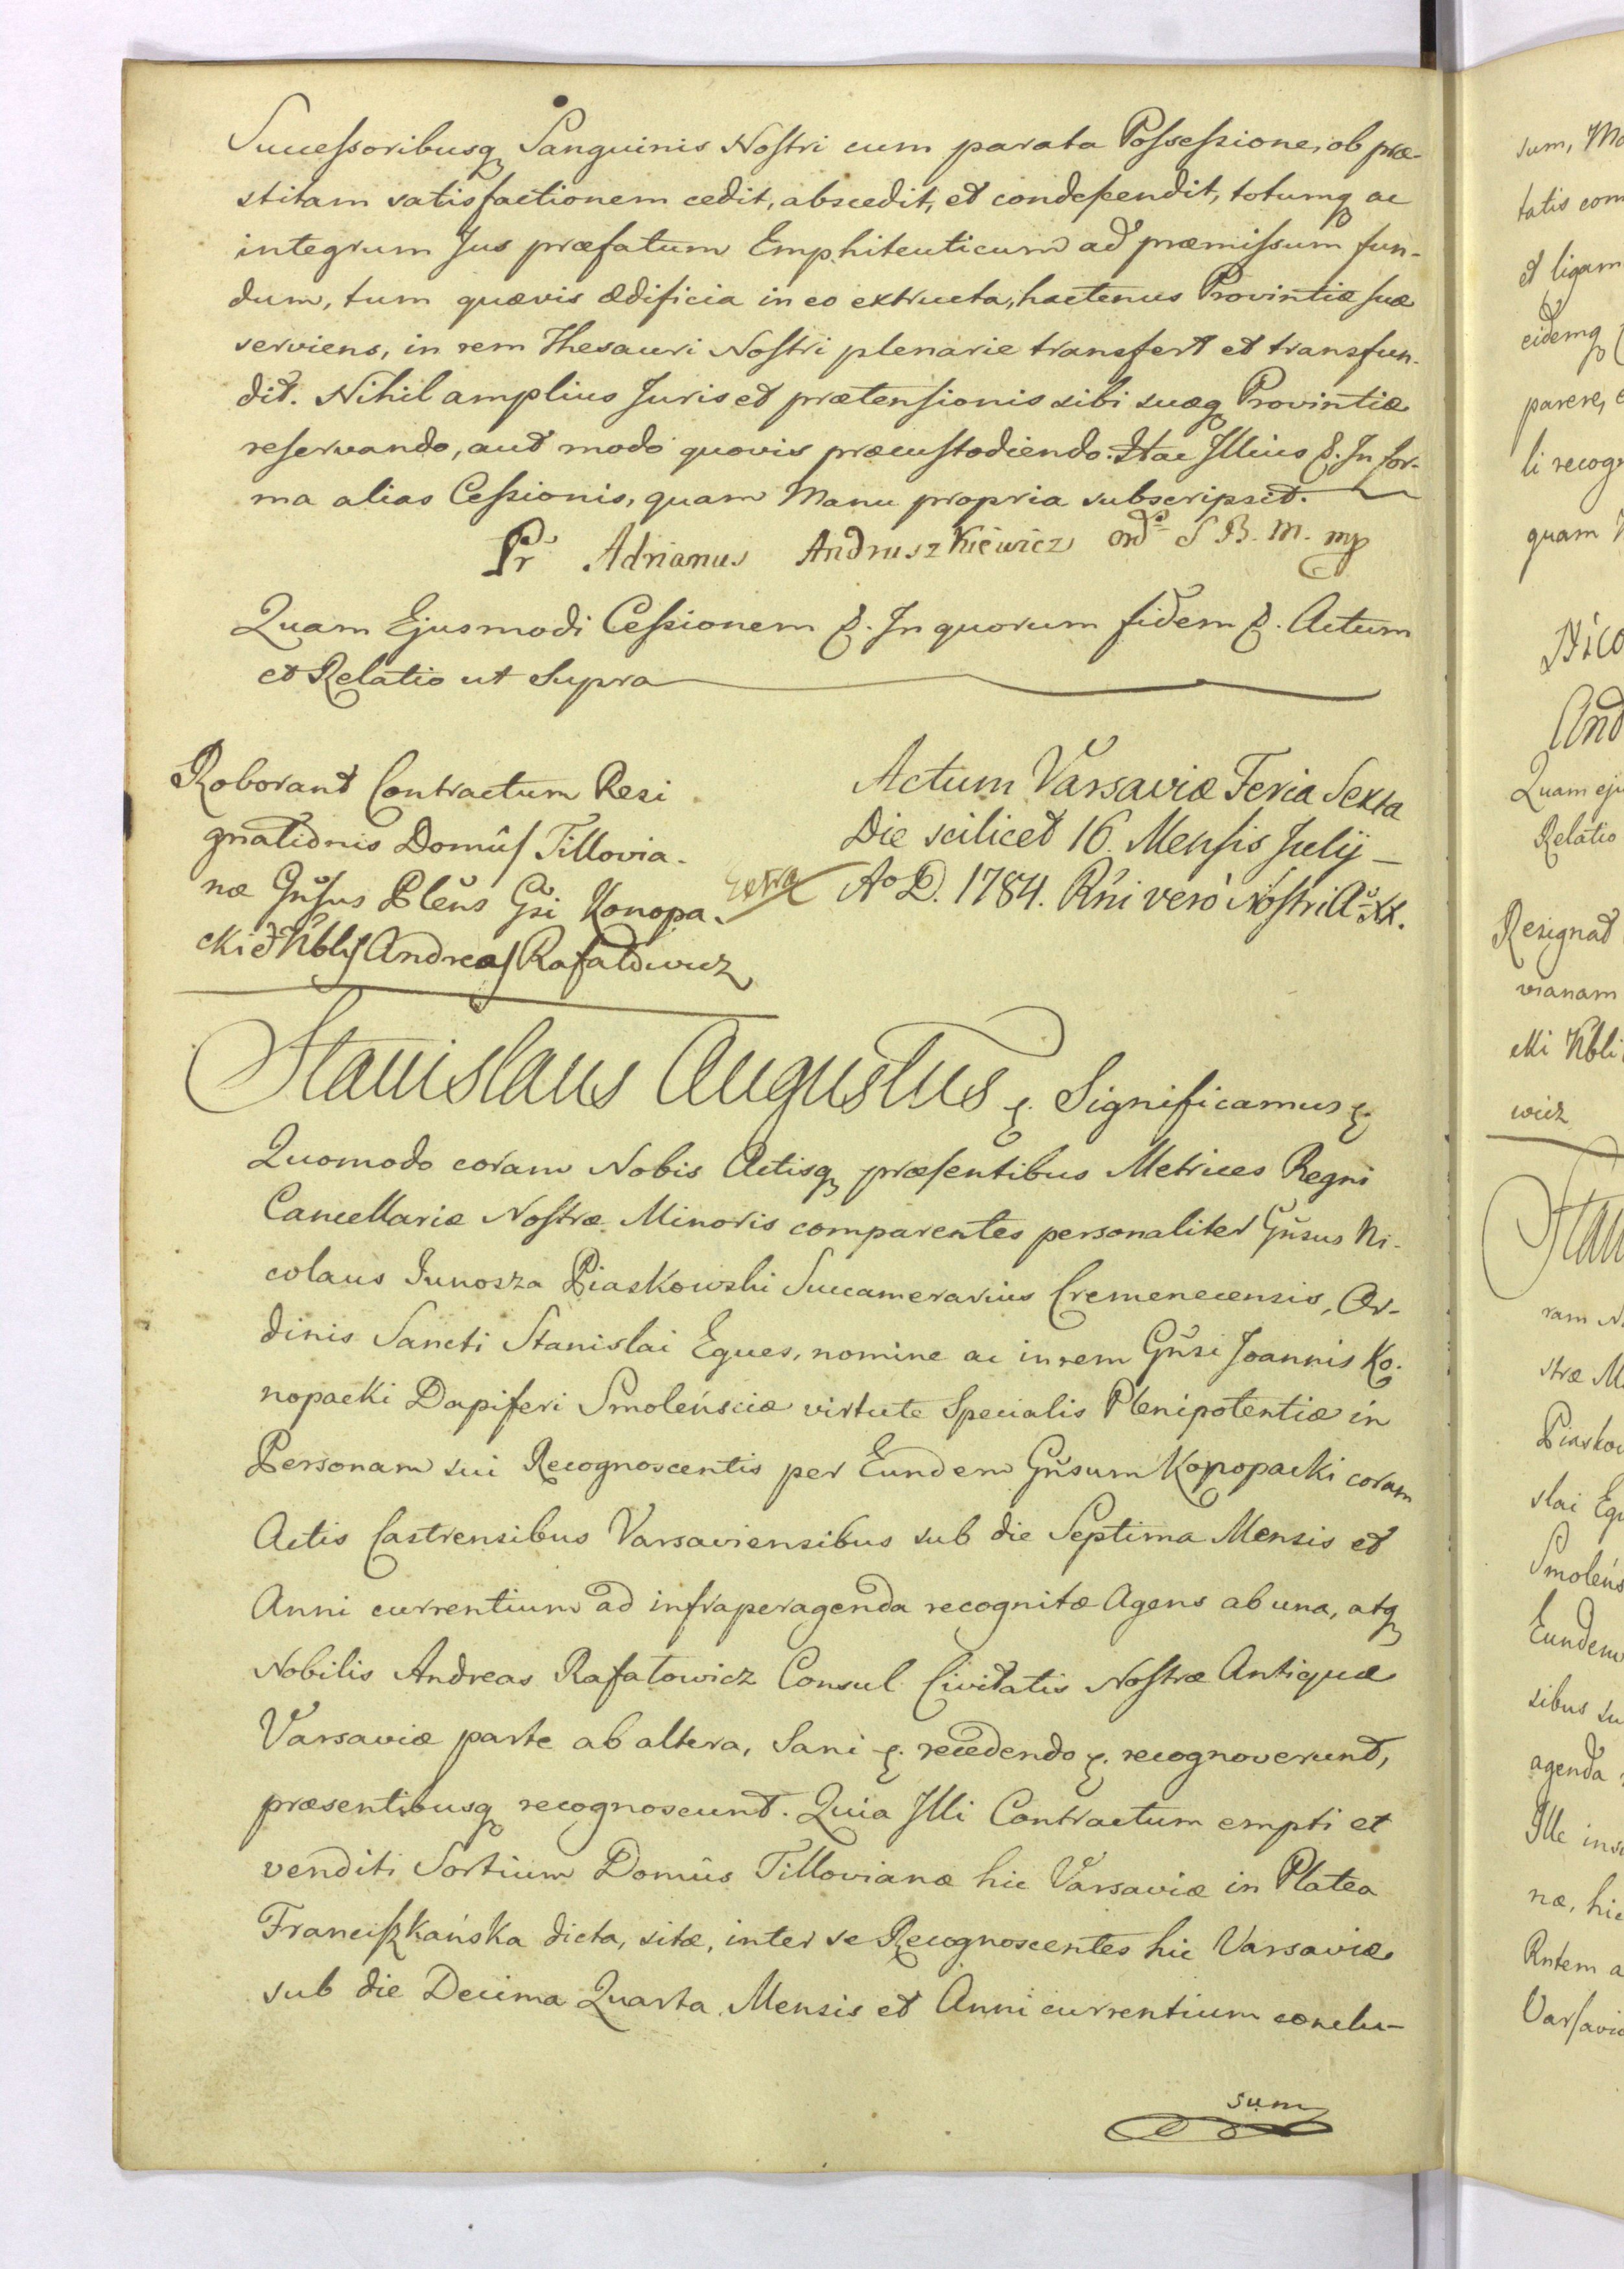 Successoribusq Sanguinis Nostri cum parata Possessione, ob præ-
stitam satisfactionem cedit, abscedit, et condescendit, totumq ac
integrum Jus præfatum Emphiteuticum ad præmissum fun-
dum, tum quævis ædificia in eo extructa, hactenus Provintiæ suæ
serviens, in rem Thesauri Nostri plenarie transfert et transfun-
dit. Nihil amplius Juris et prætensionis sibi suæq Provintiæ
reservando, aut modo quovis præcustodiendo. Hac Illius &. In for-
ma alias Cessionis, quam Manu propria subscripsit.
Pr Adrianus Andruszkiewicz ord S B. M. mp
Quam Ejusmodi Cessionem &. In quorum fidem &. Actum
et Relatio ut Supra
Roborant Contractum Resi
gnationis Domûs Tillovia-
næ Gnsus Plens Gsi Konopa-
cki et Nblis Andreas Rafałowicz
Extra
Actum Varsaviæ Feria Sexta
Die scilicet 16. Mensis Julij
Ao D. 1784. Rni vero Nostri Ao XX.
Stanislaus Augustus &. Significamus &.
Quomodo coram Nobis Actisq præsentibus Metrices Regni
Cancellariæ Nostræ Minoris comparentes personaliter Gnsus Ni-
colaus Junosza Piaskowski Succamerarius Cremenecensis, Or-
dinis Sancti Stanislai Eques, nomine ac in rem Gnsi Joannis Ko-
nopacki Dapiferi Smolénsciæ virtute Specialis Plenipotentiæ in
Personam sui Recognoscentis per Eundem Gnsum Konopacki coram
Actis Castrensibus Varsaviensibus sub die Septima Mensis et
Anni currentium ad infraperagenda recognitæ Agens ab una, atq
Nobilis Andreas Rafałowicz Consul Civitatis Nostræ Antiquæ
Varsaviæ parte ab altera, Sani &. recedendo &. recognoverunt,
præsentibusq recognoscunt. Quia Illi Contractum empti et
venditi Sortium Domûs Tillovianæ hic Varsaviæ in Platea
Franciszkańska dicta, sitæ, inter se Recognoscentes hic Varsaviæ
sub die Decima Quarta Mensis et Anni currentium conclu-
sum
sum, Mo
tatis com
et ligam
eidemq
parere,
li recog
quam
Nico
And
Quam eju
Relatio
Resignat
vianam
cki Nbli
wicz
Stan
ram N
stræ M
Piasko
slai Equ
Smoléns
Eundem
sibus su
agenda
Ille in
næ, hic
Rntem a
Varsavia